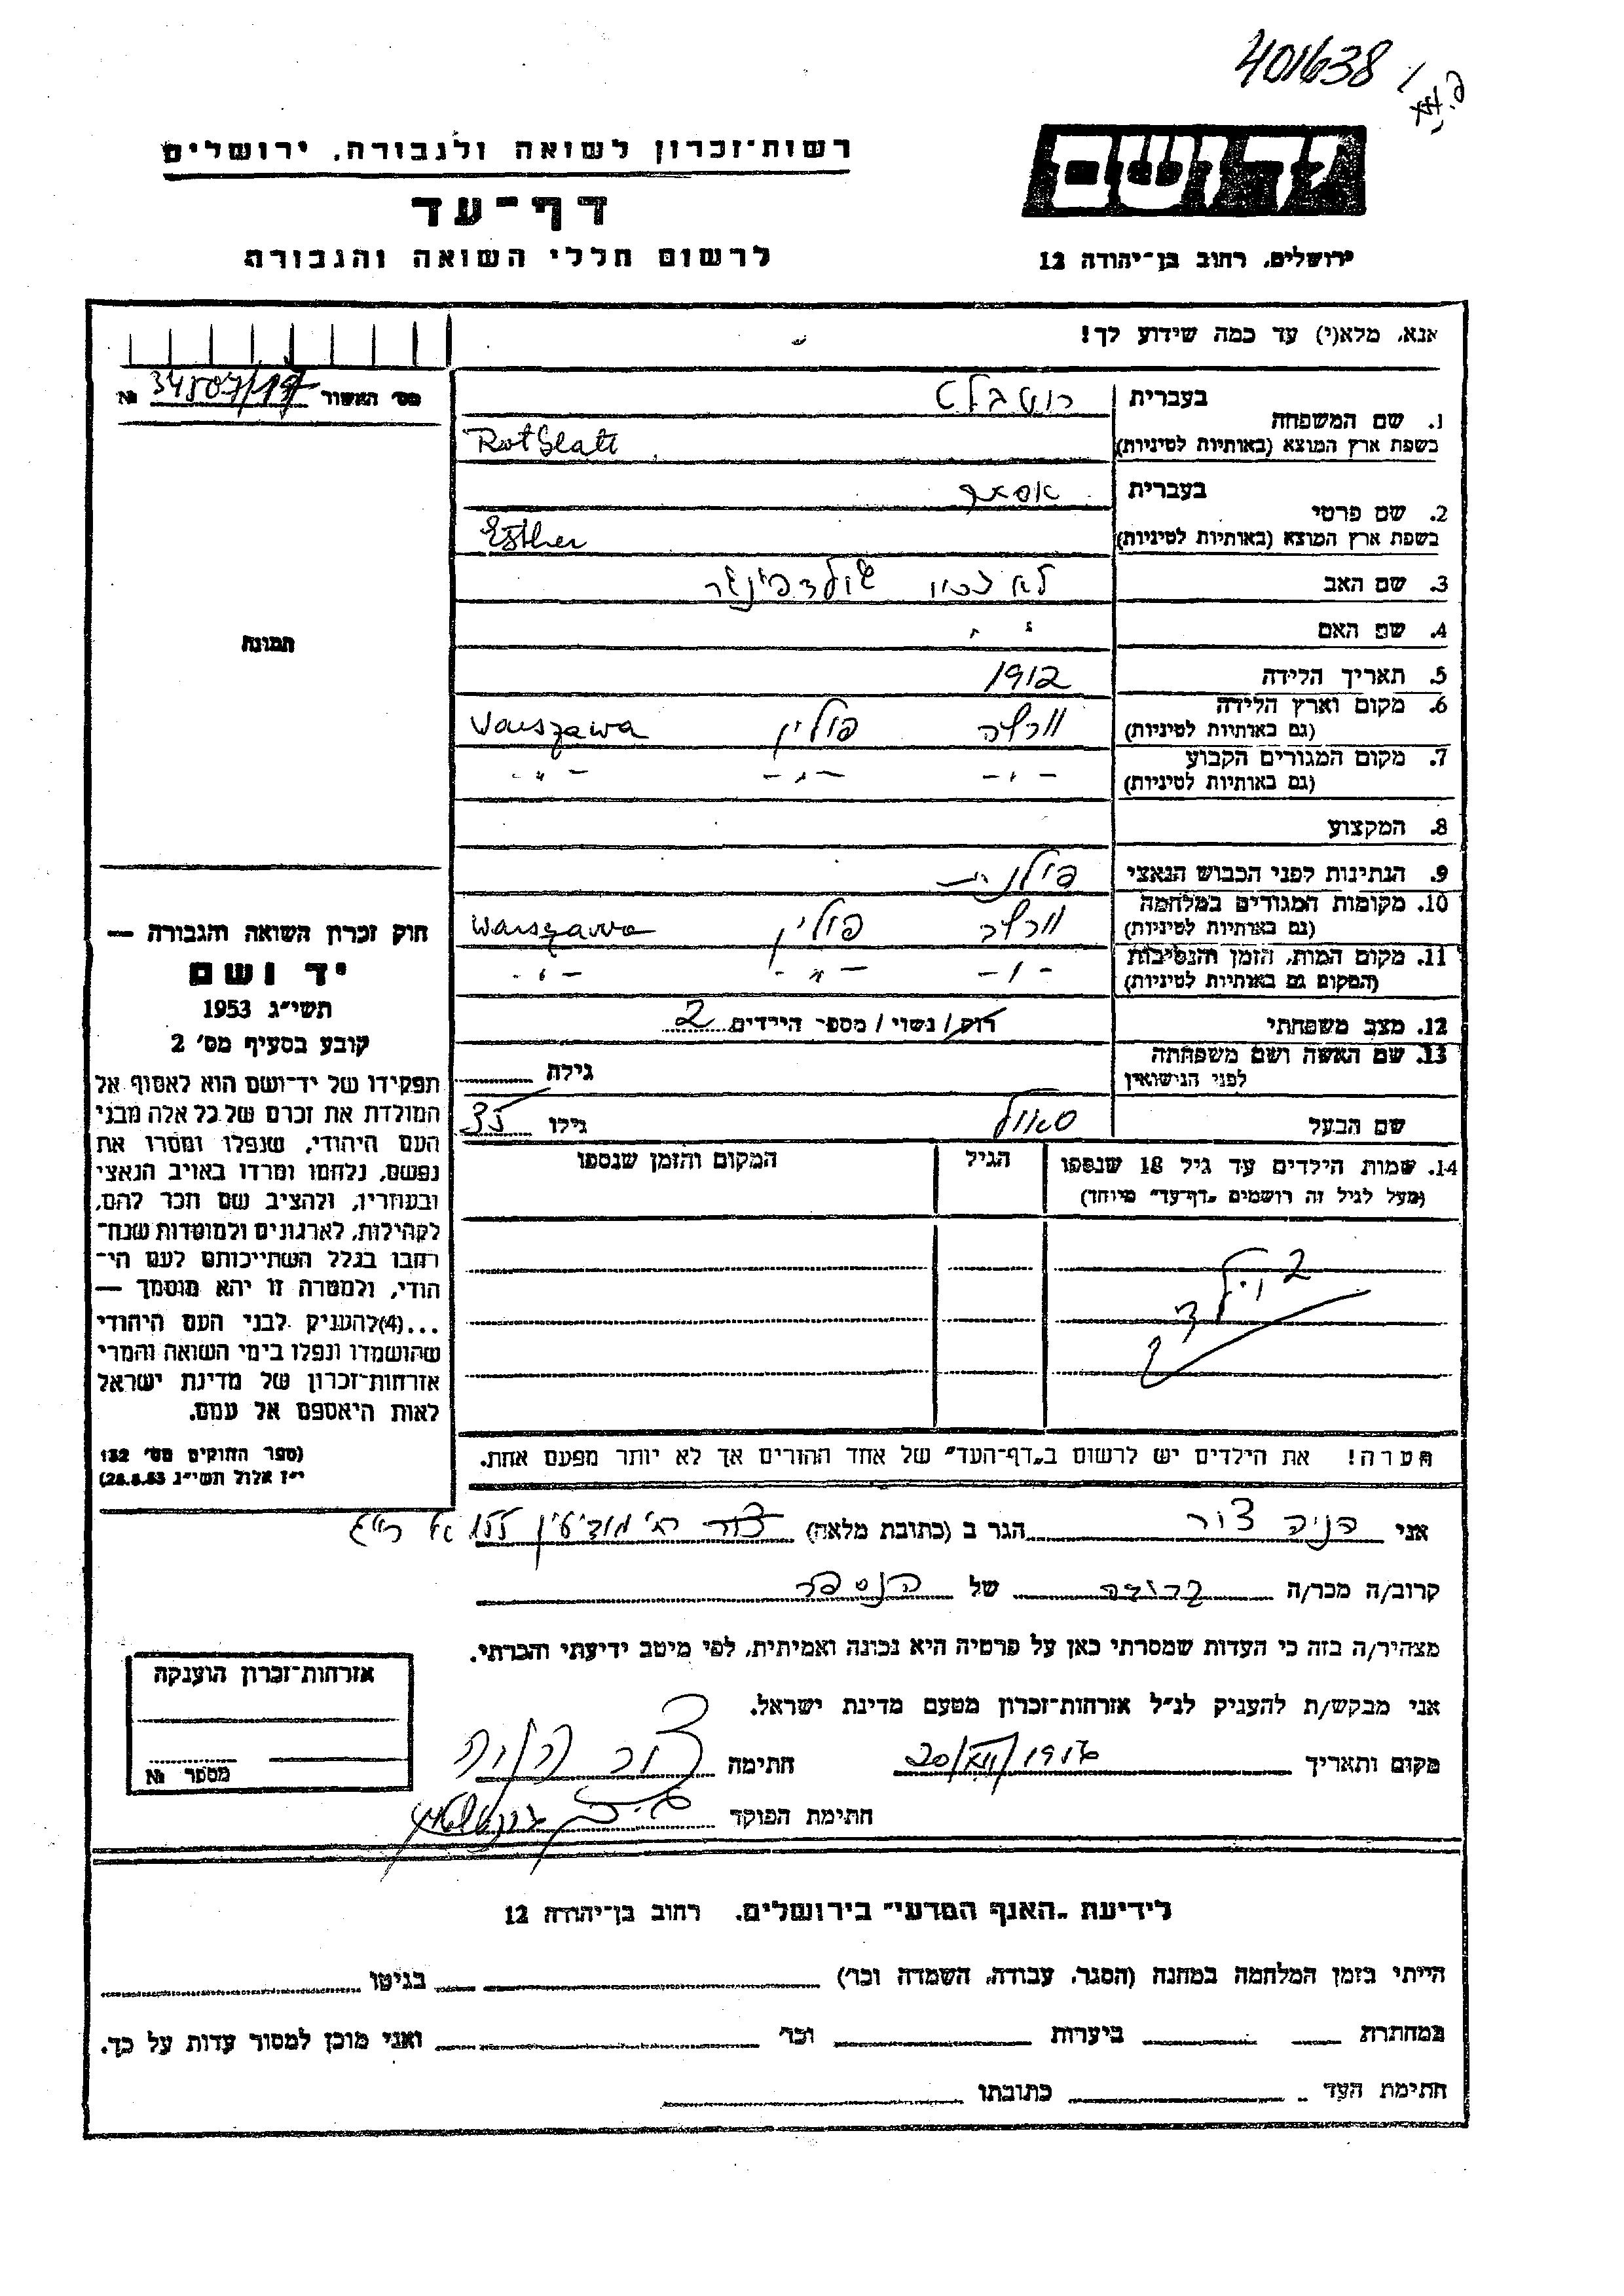 401638
יד ושם
ירושלים, רחוב בן־יהודה 12
רשות־זכרון לשואה ולגבורה, ירושלים
דף־עד
לרשום חללי השואה והגבורה
אנא, מלא(י) עד כמה שידוע לך!
מס׳ האשור 34507/197 №
תמונה
1. שם המשפחה
בעברית רוטבלט
בשפת ארץ המוצא (באותיות לטיניות) Rotblatt
2. שם פרטי
בעברית אסתר
בשפת ארץ המוצא (באותיות לטיניות) Esther
3. שם האב לא זכור גולדפינגר
4. שם האם " "
5. תאריך הלידה 1912
6. מקום וארץ הלידה ורשה פולין Warszawa
(גם באותיות לטיניות)
7. מקום המגורים הקבוע - " - - " - - " -
(גם באותיות לטיניות)
8. המקצוע
9. הנתינות לפני הכבוש הנאצי פולנית
10. מקומות המגורים במלחמה ורשה פולין Warszawa
(גם באותיות לטיניות)
11. מקום המות, הזמן והנסיבות - " - - " - - " -
(המקום גם באותיות לטיניות)
12. מצב משפחתי רוק/נשוי/מספר הילדים 2
13. שם האשה ושם משפחתה
לפני הנישואין גילה
שם הבעל גילו 35
14. שמות הילדים עד גיל 18 שנספו הגיל המקום והזמן שנספו
(מעל לגיל זה רושמים „דף־עד” מיוחד)
2 ילדים
הערה! את הילדים יש לרשום ב„דף־העד” של אחד ההורים אך לא יותר מפעם אחת.
חוק זכרון השואה והגבורה —
יד ושם
תשי״ג 1953
קובע בסעיף מס׳ 2
תפקידו של יד־ושם הוא לאסוף אל
המולדת את זכרם של כל אלה מבני
העם היהודי, שנפלו ומסרו את
נפשם, נלחמו ומרדו באויב הנאצי
ובעוזריו, ולהציב שם וזכר להם,
לקהילות, לארגונים ולמוסדות שנח־
רבו בגלל השתייכותם לעם הי־
הודי, ולמטרה זו יהא מוסמך —
...(4)להעניק לבני העם היהודי
שהושמדו ונפלו בימי השואה והמרי
אזרחות־זכרון של מדינת ישראל
לאות היאספם אל עמם.
(ספר החוקים מס׳ 132
י״ז אלול תשי״ג 28.8.53)
אני צור הגר ב (כתובת מלאה)
קרוב/ה מכר/ה של הנספה
מצהיר/ה בזה כי העדות שמסרתי כאן על פרטיה היא נכונה ואמיתית, לפי מיטב ידיעתי והכרתי.
אני מבקש/ת להעניק לנ״ל אזרחות־זכרון מטעם מדינת ישראל.
מקום ותאריך חתימה
חתימת הפוקד
אזרחות־זכרון הוענקה
מספר №
לידיעת „האגף המדעי” בירושלים, רחוב בן־יהודה 12
הייתי בזמן המלחמה במחנה (הסגר, עבודה, השמדה וכו׳) בגיטו
במחתרת ביערות וכו׳ ואני מוכן למסור עדות על כך.
חתימת העד כתובתו